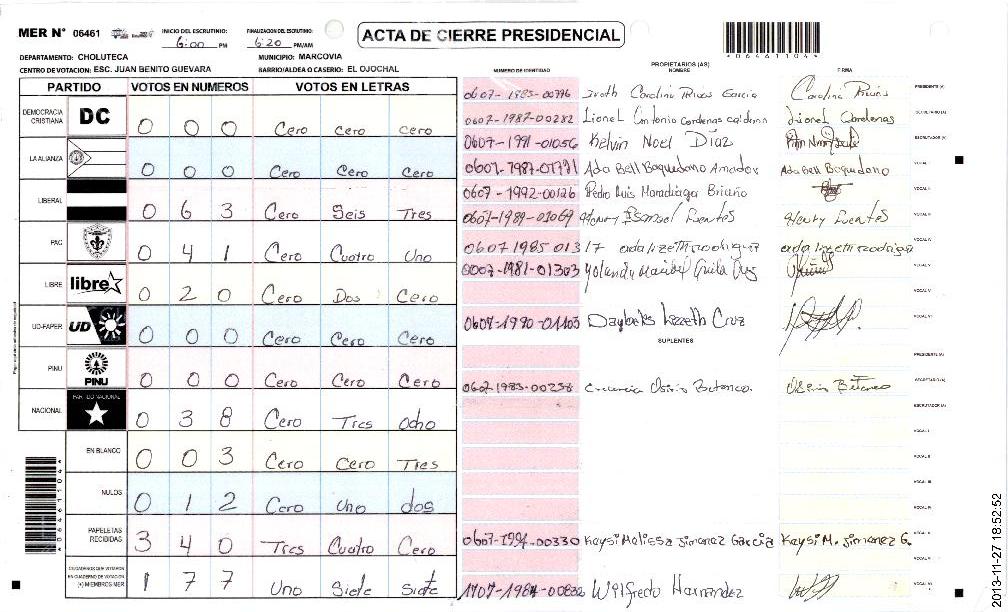 MER N° 06461 INICIO DEL ESCRUTINIO: 6:00 PM FINALIZACION DEL ESCRUTINIO: 6:20 PM/AM
ACTA DE CIERRE PRESIDENCIAL
DEPARTAMENTO: CHOLUTECA MUNICIPIO: MARCOVIA
CENTRO DE VOTACION: ESC. JUAN BENITO GUEVARA BARRIO/ALDEA O CASERIO: EL OJOCHAL
PARTIDO VOTOS EN NUMEROS VOTOS EN LETRAS
DEMOCRACIA CRISTIANA DC 0 0 0 Cero cero cero
LA ALIANZA 0 0 0 Cero Cero Cero
LIBERAL 0 6 3 Cero Seis Tres
PAC 0 4 1 Cero Cuatro Uno
LIBRE libre 0 2 0 Cero Dos Cero
UD-FAPER UD 0 0 0 Cero Cero Cero
PINU PINU 0 0 0 Cero Cero Cero
NACIONAL PARTIDO NACIONAL 0 3 8 Cero Tres ocho
EN BLANCO 0 0 3 Cero Cero Tres
NULOS 0 1 2 Cero Uno dos
PAPELETAS RECIBIDAS 3 4 0 Tres Cuatro Cero
CIUDADANOS QUE VOTARON EN CUADERNO DE VOTACION (+) MIEMBROS MER 1 7 7 Uno Siete Siete
PROPIETARIOS (AS)
NUMERO DE IDENTIDAD NOMBRE FIRMA
0607-1985-00796 Carolina Rivas Garcia Carolina Rivas PRESIDENTE (A)
0607-1987-00282 Lionel Antonio Cardenas Lionel Cardenas SECRETARIO (A)
0607-1991-01056 Kelvin Noel Díaz ESCRUTADOR (A)
0607-1987-01791 Ada Bell Baquedano Amador Ada Bell Baquedano VOCAL I
0607-1992-00126 Pedro Luis Maradiaga Briceño VOCAL II
0607-1989-01069 Henry Ismael Fuentes Henry Fuentes VOCAL III
0607 1985 01317 aida lizeth rodriguez aida lizeth rodriguez VOCAL IV
-1981-01303 Yolanda Maribel Cruz VOCAL V
VOCAL VI
0607-1990-01103 Lizeth Cruz VOCAL VII
SUPLENTES
PRESIDENTE (A)
0607-1983-00258 Osiris Betanco Osiris Betanco SECRETARIO (A)
ESCRUTADOR (A)
VOCAL I
VOCAL II
VOCAL III
VOCAL IV
0607-1994-00330 Kaysi Melissa Jimenez Garcia Kaysi M. Jimenez G. VOCAL V
1707-1984-00832 Wilfredo Hernandez VOCAL VI
2013-11-27 18:52:52